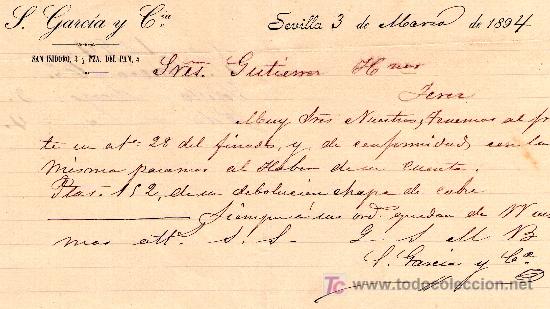 S. García y Cía
Sevilla 3 de Marzo de 1894
SAN ISIDORO, 3 y PZA. DEL PAN, 5
Sres. Gutierrez Hnos
Jerez
Muy Sres Nuestros, tenemos al fr
te en atª 28 del finado, y de conformidad con la
misma pasamos al Haber de su cuenta
Ptas. 152, de su debolucion chapa de cobre
Siempre á sus ord. quedan de V
mas attº S. S. Q. S. M. B.
S. Garcia y Cª
todocoleccion.net